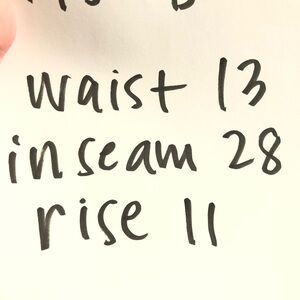 waist 13
inseam 28
rise 11